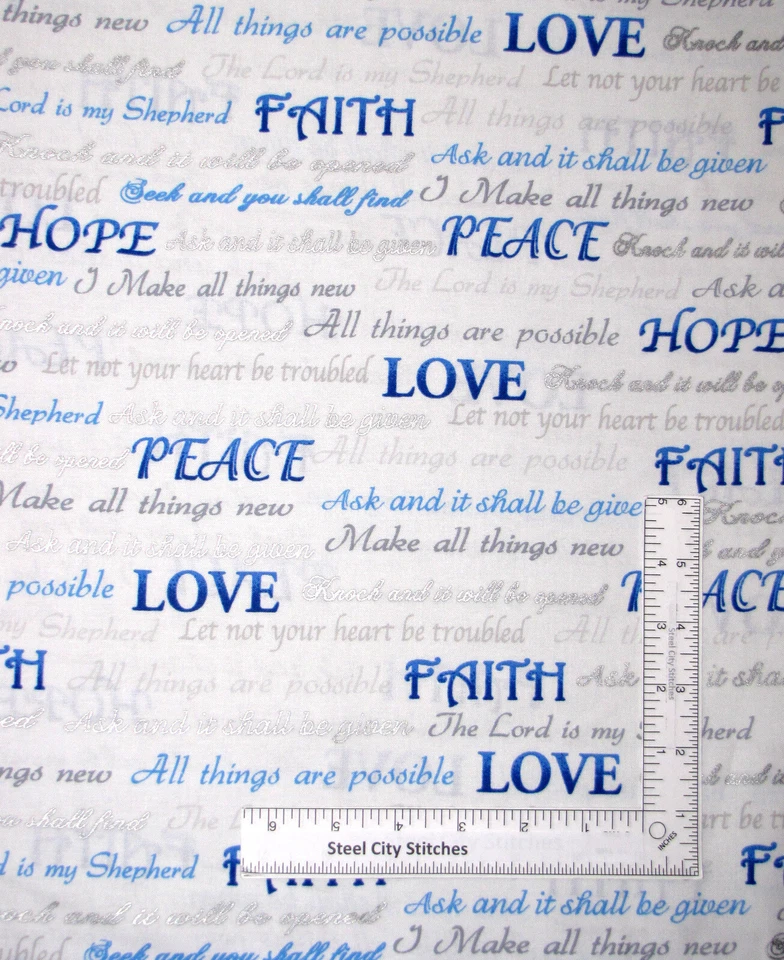 my Shepherd
things new All things are possible LOVE Knock and
you shall find The Lord is my Shepherd Let not your heart be
Lord is my Shepherd FAITH All things are possible F
Knock and it will be opened Ask and it shall be given
troubled Seek and you shall find I Make all things new
HOPE Ask and it shall be given PEACE Knock and it will
given I Make all things new The Lord is my Shepherd Ask a
Knock and it will be opened All things are possible HOPE
w Let not your heart be troubled LOVE Knock and it will be op
Shepherd Ask and it shall be given Let not your heart be troubled
ll be opened PEACE All things are possible FAITH
Make all things new Ask and it shall be give Knoc
Ask and it shall be given Make all things new and y
possible LOVE Knock and it will be opened P ACE
my Shepherd Let not your heart be troubled All th are p
TH All things are possible FAITH Ask it sha
ed Ask and it shall be given The Lord is my S herd
ngs new All things are possible LOVE k and it
u shall find The L rt be t
d is my Shepherd F FA
ock and it will be opened Ask and it shall be given
ubled Seek and you shall find I Make all things new
5 6
4 5
3 4
2 3
1 2
1
Steel City Stitches
6 5 4 3 2 1
INCHES
Steel City Stitches